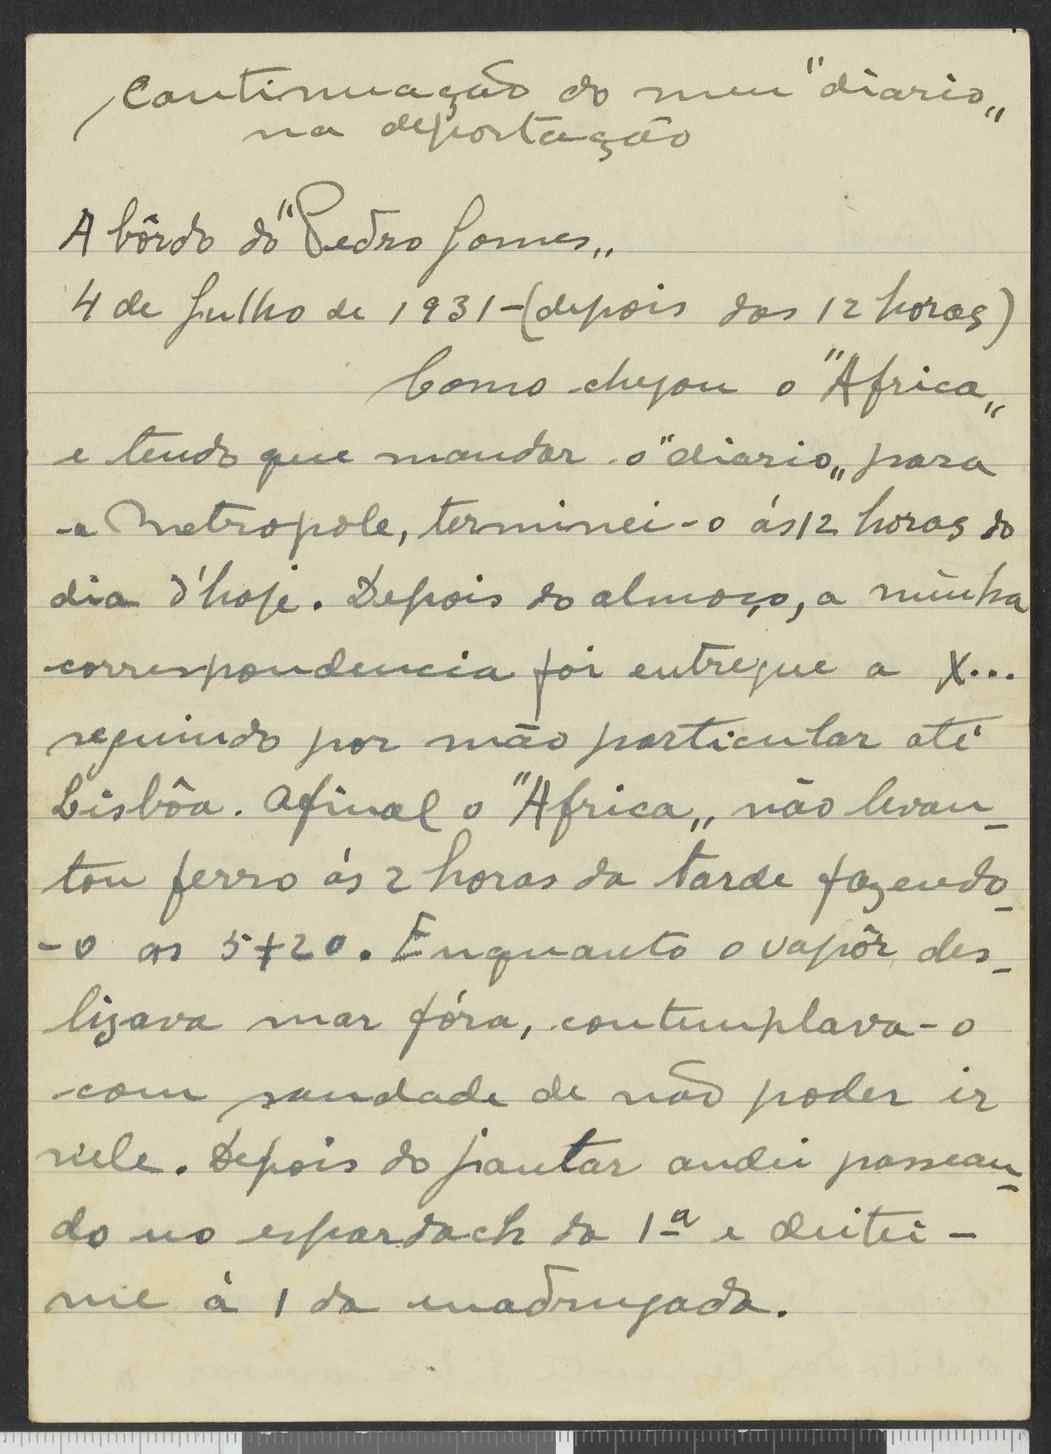 Continuação do meu "diario„
na deportação
A bôrdo do "Pedro Gomes„
4 de Julho de 1931-(depois das 12 horas)
Como chegou o "Africa„
e tendo que mandar o "diario„ para
a Metropole, terminei-o ás 12 horas do
dia d'hoje. Depois do almoço, a minha
correspondencia foi entregue a X...
seguindo por mão particular até
Lisbôa. Afinal o "Africa„ não levan-
tou ferro ás 2 horas da tarde fazendo-
-o as 5+20. Enquanto o vapôr des-
lizava mar fóra, contemplava-o
com saudade de não poder ir
n'ele. Depois do jantar andei passean-
do no espardach da 1ª e deitei-
me á 1 da madrugada.